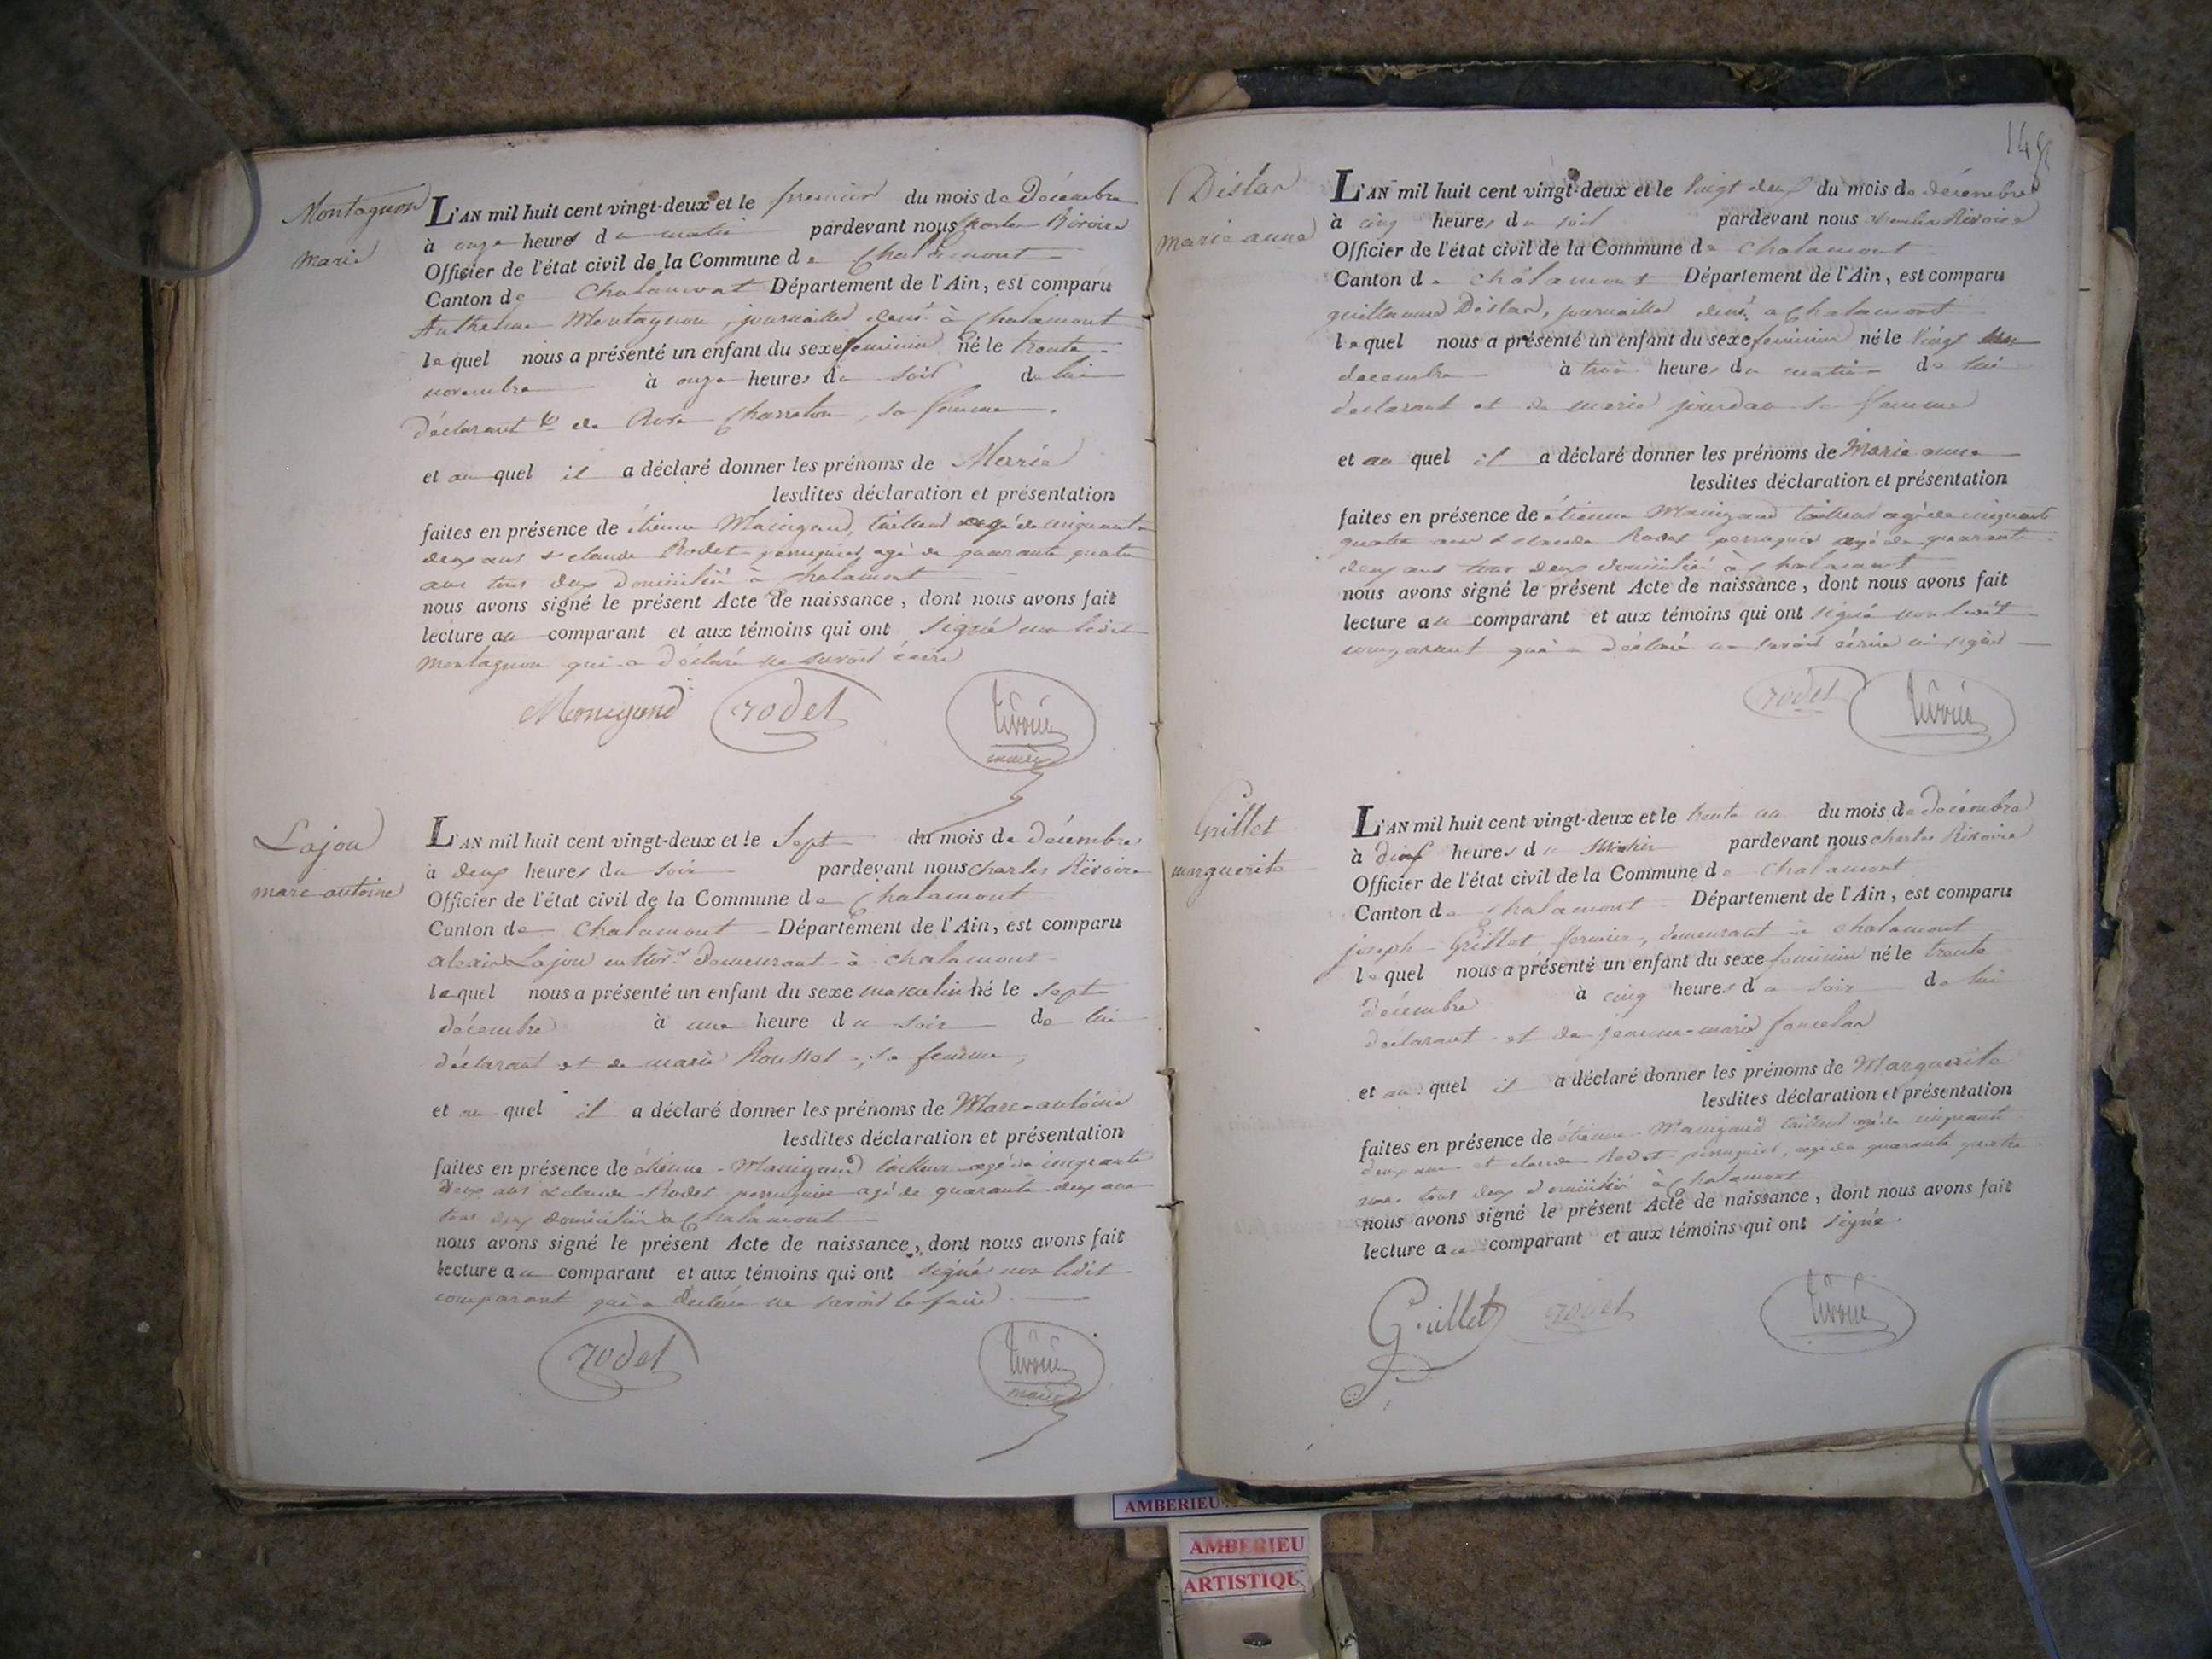 Montagnon
marie
L'AN mil huit cent vingt-deux et le premier du mois de Décembre
à onze heures du matin pardevant nous Charles Rivoire
Officier de l'état civil de la Commune de Chalamont
Canton de Chalamont Département de l'Ain, est comparu
Anthelme Montagnon, journallier dem.t à Chalamont
lequel nous a présenté un enfant du sexe feminin né le trente
novembre à onze heures du soir de lui
déclarant et de Rose Charreton, sa femme.
et au quel il a déclaré donner les prénoms de Marie
lesdites déclaration et présentation
faites en présence de étienne Manigand, tailleur agé de cinquante
deux ans & claude Rodet perruquier, agé de quarante quatre
ans tous deux domiciliés à Chalamont
nous avons signé le présent Acte de naissance, dont nous avons fait
lecture au comparant et aux témoins qui ont signé non ledit
Montagnon qui a déclaré ne savoir écrire
Manigand rodet rivoire
maire
Lajou
marc-antoine
L'AN mil huit cent vingt-deux et le Sept du mois de Décembre
à deux heures du soir pardevant nous charles Rivoire
Officier de l'état civil de la Commune de Chalamont
Canton de Chalamont Département de l'Ain, est comparu
Lajou demeurant à chalamont
lequel nous a présenté un enfant du sexe masculin né le sept
décembre à une heure du soir de lui
déclarant et de marie Rousset, sa femme,
et au quel il a déclaré donner les prénoms de Marc-antoine
lesdites déclaration et présentation
faites en présence de étienne Manigand tailleur agé de cinquante
deux ans & claude Rodet perruquier agé de quarante deux ans
tous deux domiciliés à Chalamont
nous avons signé le présent Acte de naissance, dont nous avons fait
lecture au comparant et aux témoins qui ont signés non ledit
comparant qui a déclaré ne savoir le faire
rodet rivoire
maire
148
Dislar
marie anne
L'AN mil huit cent vingt-deux et le vingt deux du mois de décembre
à cinq heures du soir pardevant nous charles Rivoire
Officier de l'état civil de la Commune de Chalamont
Canton de chalamont Département de l'Ain, est comparu
guillaume Dislar, journallier dem.t à Chalamont
lequel nous a présenté un enfant du sexe feminin né le vingt
decembre à trois heures du matin de lui
déclarant et de marie jourdan sa femme
et au quel il a déclaré donner les prénoms de Marie anne
lesdites déclaration et présentation
faites en présence de étienne Manigand tailleur agé de cinquante
quatre ans & claude Rodet perruquier agé de quarante
deux ans tous deux domiciliés à Chalamont
nous avons signé le présent Acte de naissance, dont nous avons fait
lecture au comparant et aux témoins qui ont signé non ledit
comparant qui a déclaré ne savoir écrire ni signer
rodet rivoire
Grillet
marguerite
L'AN mil huit cent vingt-deux et le trente un du mois de Décembre
à heures du matin pardevant nous charles Rivoire
Officier de l'état civil de la Commune de Chalamont
Canton de chalamont Département de l'Ain, est comparu
joseph Grillet fermier, demeurant à chalamont
lequel nous a présenté un enfant du sexe feminin né le trente
décembre à cinq heures du soir de lui
declarant et de jeanne-marie
et au quel il a déclaré donner les prénoms de Marguerite
lesdites déclaration et présentation
faites en présence de étienne Manigand tailleur agé de cinquante
deux ans et claude Rodet perruquier, agé de quarante quatre
ans tous deux domiciliés à Chalamont
nous avons signé le présent Acte de naissance, dont nous avons fait
lecture au comparant et aux témoins qui ont signé.
Grillet rodet rivoire
AMBERIEU
AMBERIEU
ARTISTIQU